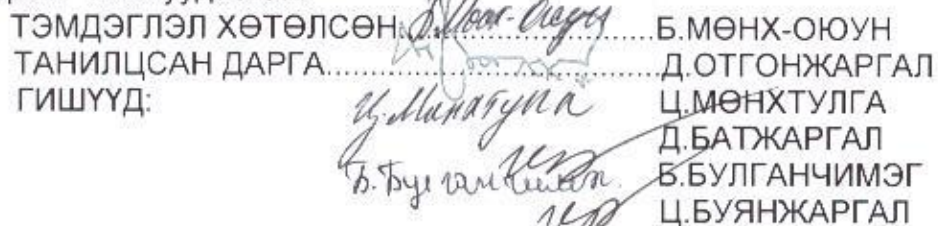 ТЭМДЭГЛЭЛ ХӨТӨЛСӨН Б.Мөнх-Оюун Б.МӨНХ-ОЮУН
ТАНИЛЦСАН ДАРГА..............................Д.ОТГОНЖАРГАЛ
ГИШҮҮД: Ц.Мөнхтулга Ц.МӨНХТУЛГА
Д.БАТЖАРГАЛ
Б.Булганчимэг Б.БУЛГАНЧИМЭГ
Ц.БУЯНЖАРГАЛ